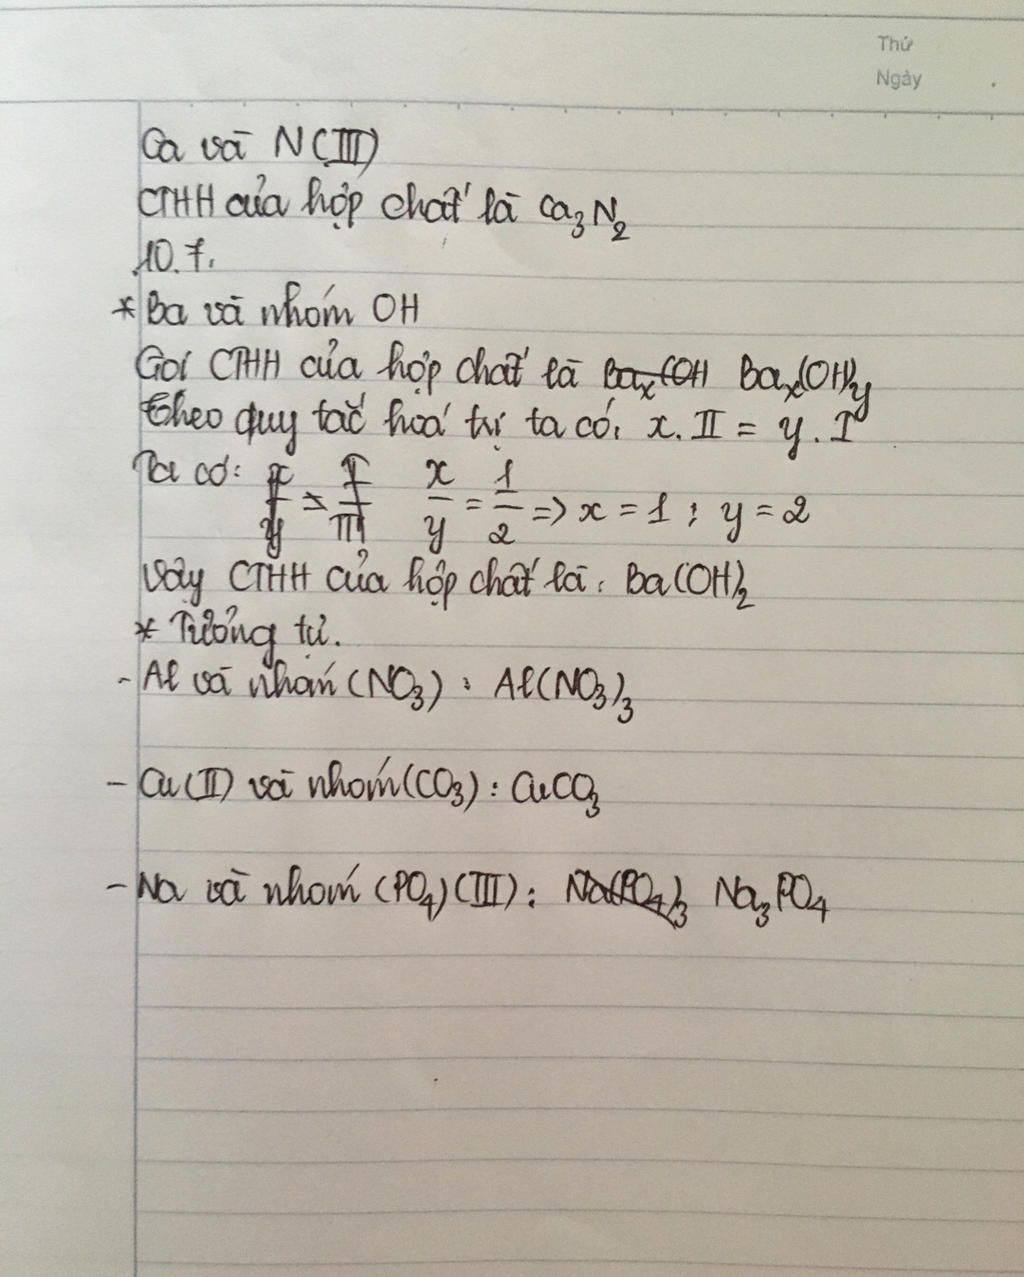 Thứ
Ngày
Ca và N(III)
CTHH của hợp chất là Ca₃N₂
10.7.
* Ba và nhóm OH
Gọi CTHH của hợp chất là Baₓ(OH Baₓ(OH)y
Theo quy tắc hoá trị ta có: x.II = y.I
Ta có: x/y = I/III x/y = 1/2 => x = 1 ; y = 2
Vậy CTHH của hợp chất là: Ba(OH)₂
* Tương tự.
- Al và nhóm (NO₃) : Al(NO₃)₃
- Cu(II) và nhóm(CO₃) : CuCO₃
- Na và nhóm (PO₄)(III) : Na(PO₄)₃ Na₃PO₄